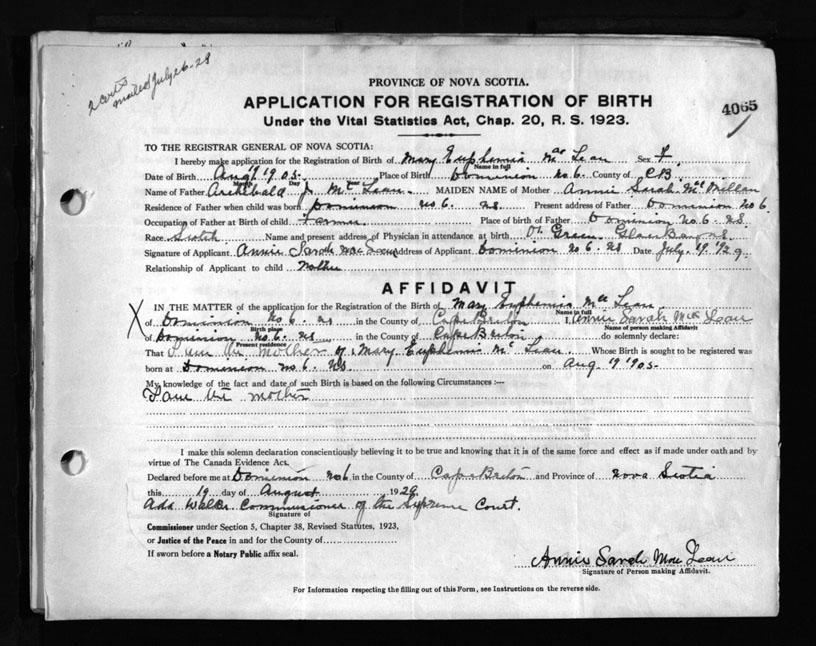 2 certs
mailed July 26-28
PROVINCE OF NOVA SCOTIA.
APPLICATION FOR REGISTRATION OF BIRTH
4065
Under the Vital Statistics Act, Chap. 20, R. S. 1923.
TO THE REGISTRAR GENERAL OF NOVA SCOTIA:
I hereby make application for the Registration of Birth of Mary Euphemia Mac Lean Sex F.
Name in full
Date of Birth Aug 9 1905 Place of Birth Dominion No 6. County of CB
Month Day Year
Name of Father Archibald J. Mc Lean. MAIDEN NAME of Mother Annie Sarah Mc Millan
Residence of Father when child was born Dominion no 6. NS Present address of Father Dominion No 6.
Occupation of Father at Birth of child Farmer Place of birth of Father Dominion No 6. NS.
Race Scotch Name and present address of Physician in attendance at birth Dr Green. Glace Bay NS.
Signature of Applicant Annie Sarah Mac Lean Address of Applicant Dominion no 6 NS Date July.
Relationship of Applicant to child Mother
AFFIDAVIT
X IN THE MATTER of the application for the Registration of the Birth of Mary Euphemia Mc Lean
Name in full
of Dominion No 6. NS in the County of Cape Breton I, Annie Sarah Lean
Birth place Name of person making Affidavit
of Dominion No 6. NS in the County of Cape Breton do solemnly declare:
Present residence
That I am the Mother of Mary Euphemia Mc Lean. Whose Birth is sought to be registered was
born at Dominion No 6. NS. on Aug. 9 1905-
My knowledge of the fact and date of such Birth is based on the following Circumstances :—
I am the mother
I make this solemn declaration conscientiously believing it to be true and knowing that it is of the same force and effect as if made under oath and by
virtue of The Canada Evidence Act.
Declared before me at Dominion No 6 in the County of Cape Breton and Province of Nova Scotia
this 19 day of August 192
Commissioner of the Supreme Court.
Signature of
Commissioner under Section 5, Chapter 38, Revised Statutes, 1923,
or Justice of the Peace in and for the County of
If sworn before a Notary Public affix seal.
Annie Sarah Mac Lean
Signature of Person making Affidavit.
For Information respecting the filling out of this Form, see Instructions on the reverse side.